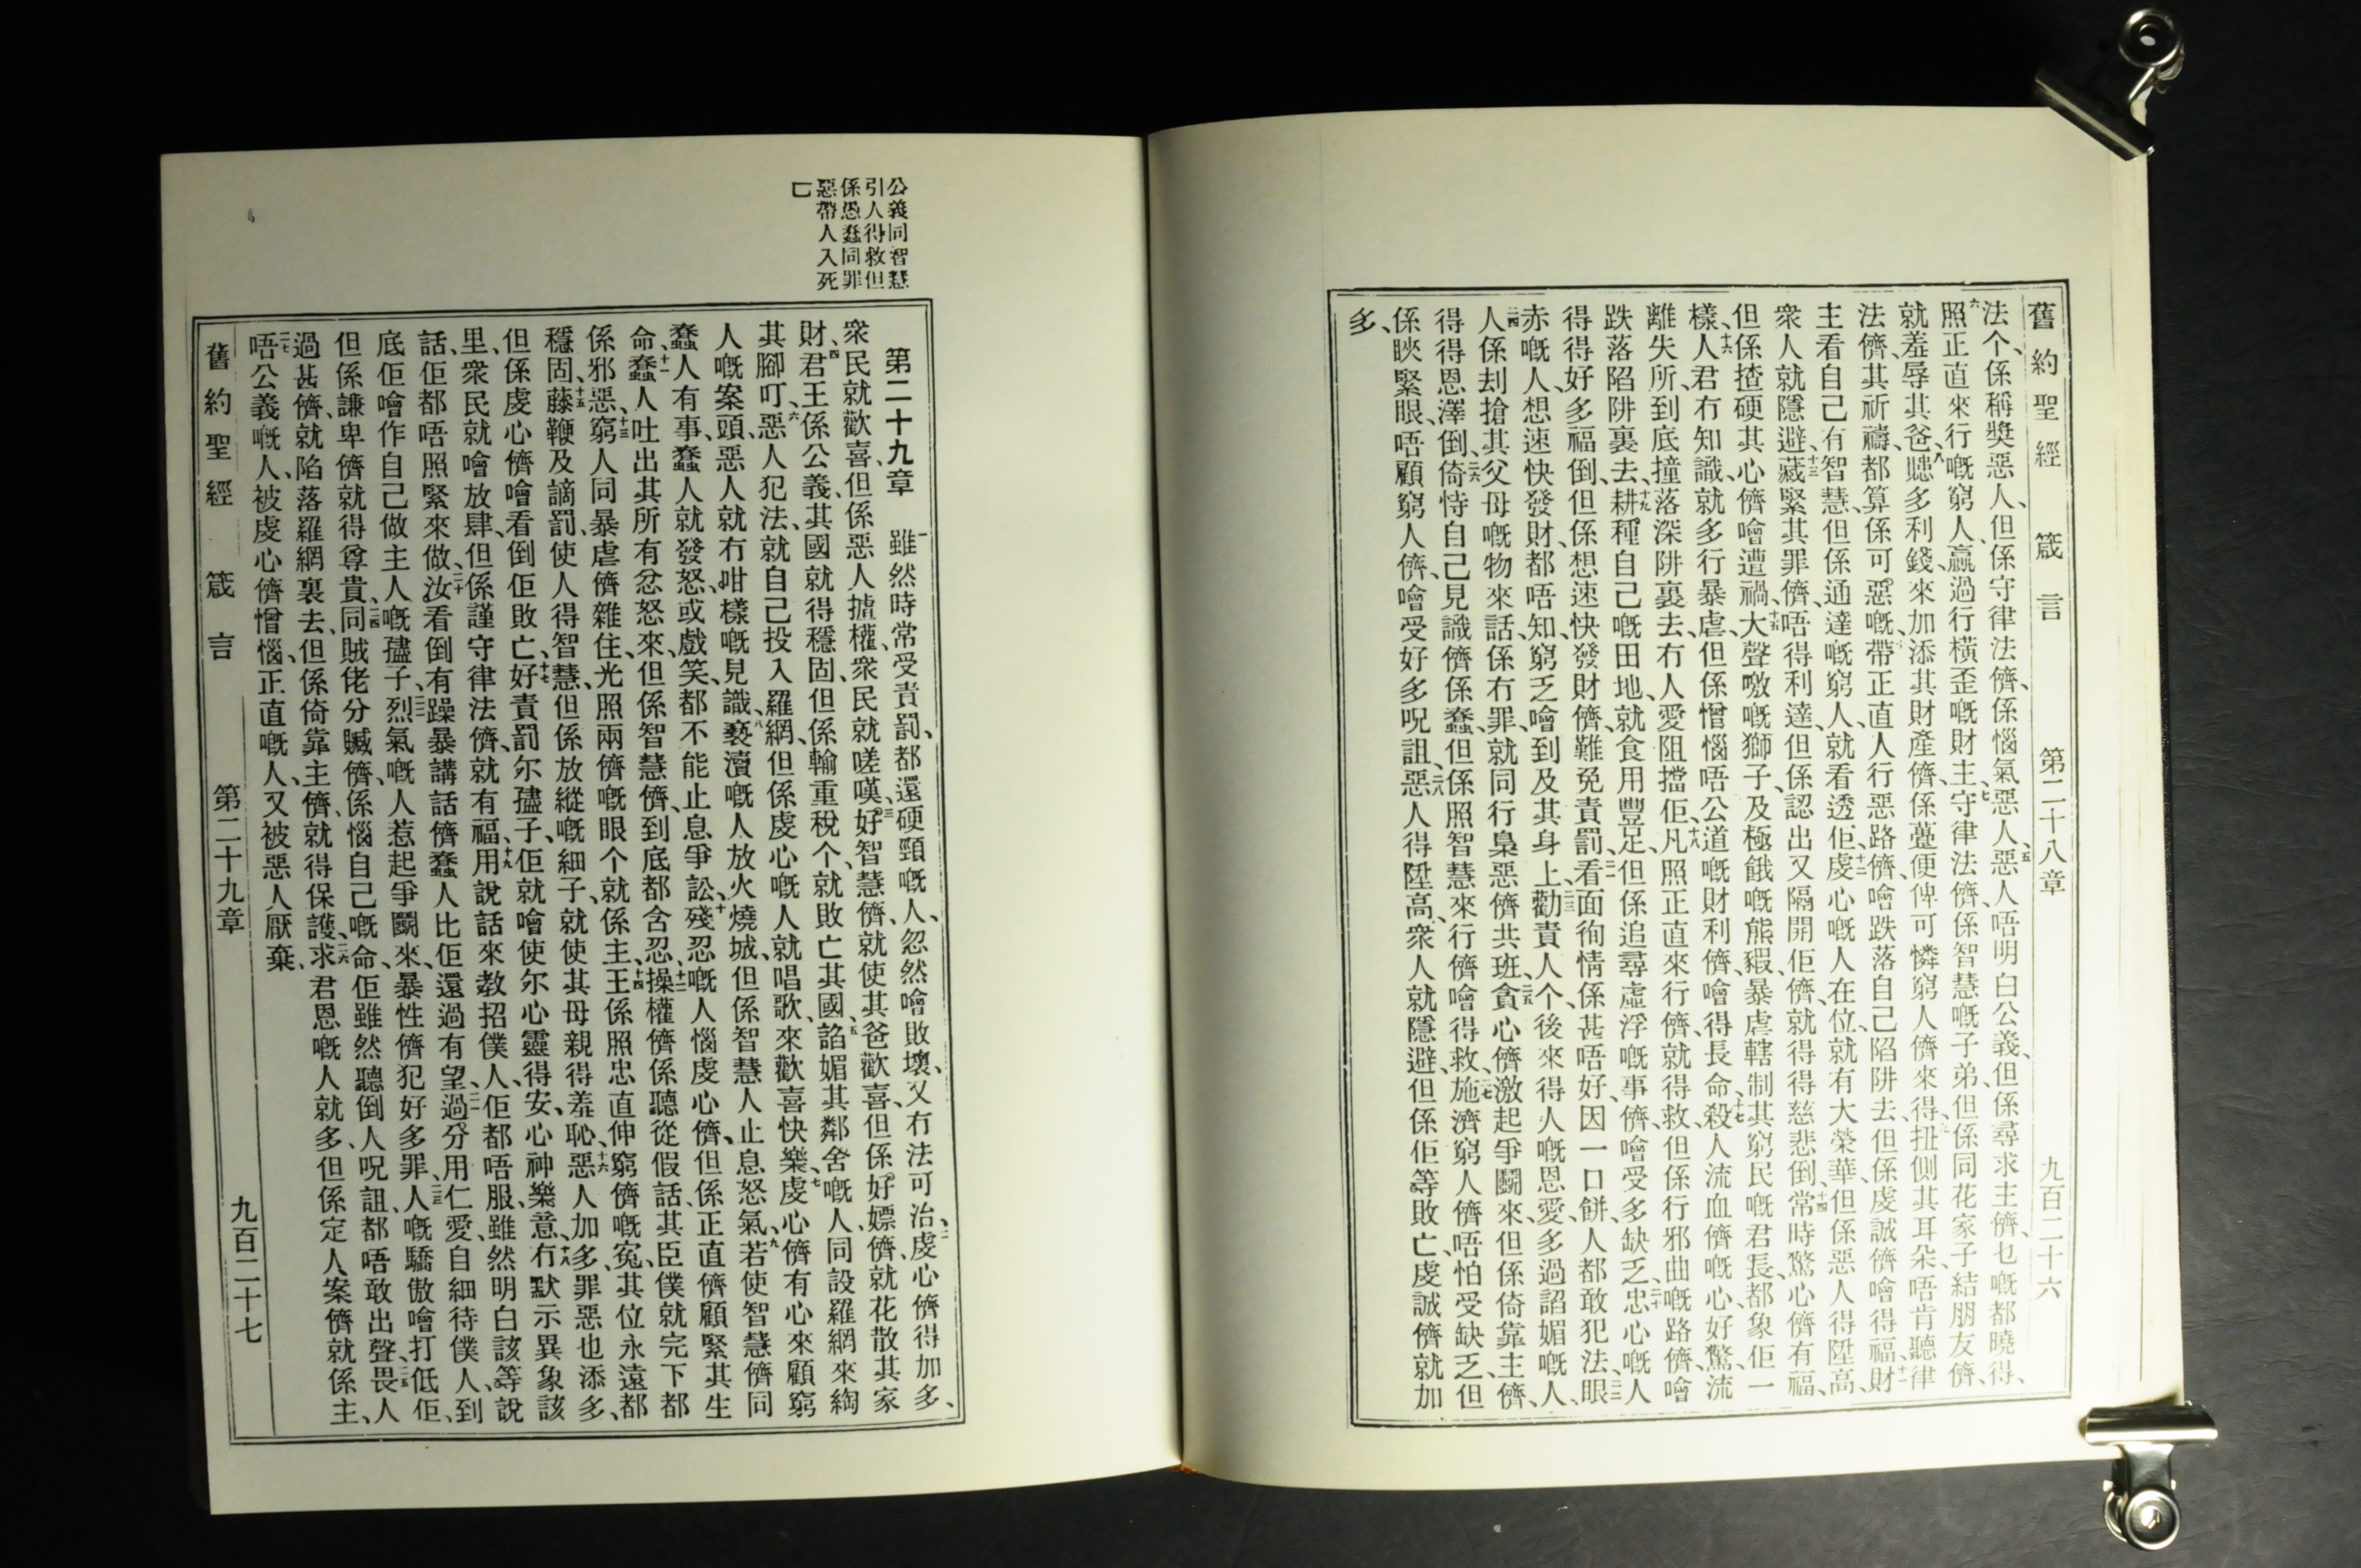 舊約聖經 箴言 第二十八章 九百二十六
法个、係稱獎惡人、但係守律法儕、係惱氣惡人、五惡人唔明白公義、但係尋求主儕、乜嘅都曉得、
六照正直來行嘅窮人、贏過行橫歪嘅財主、七守律法儕、係智慧嘅子弟、但係同花家子結朋友儕、
就羞辱其爸、八贃多利錢、來加添其財產儕、係躉便俾可憐窮人儕來得、九扭側其耳朵、唔肯聽律
法儕、其祈禱都算係可惡嘅、十帶正直人行惡路儕、噲跌落自己陷阱去、但係虔誠儕噲得福、十一財
主看自己有智慧、但係通達嘅窮人、就看透佢、十二虔心嘅人在位、就有大榮華、但係惡人得陞高、
衆人就隱避、十三藏緊其罪儕、唔得利達、但係認出又隔開佢儕、就得得慈悲倒、十四常時驚心儕有福、
但係揸硬其心儕噲遭禍、十五大聲噭嘅獅子、及極餓嘅熊、緞暴虐轄制其窮民嘅君長、都象佢一
樣、十六人君冇知識、就多行暴虐、但係憎惱唔公道嘅財利儕、噲得長命、十七殺人流血儕嘅心、好驚流
離失所、到底撞落深阱裏去、冇人愛阻擋佢、十八凡照正直來行儕、就得救、但係行邪曲嘅路儕、噲
跌落陷阱裏去、十九耕種自己嘅田地、就食用豐足、但係追尋虛浮嘅事儕、噲受多缺乏、二十忠心嘅人
得得好多福倒、但係想速快發財儕、難免責罰、二一看面徇情係甚唔好、因一口餅、人都敢犯法、二二眼
赤嘅人、想速快發財、都唔知、窮乏噲到及其身上、二三勸責人个、後來得人嘅恩愛、多過諂媚嘅人、
二四人係刦搶其父母嘅物、來話、係冇罪、就同行梟惡儕共班、二五貪心儕激起爭鬭來、但係倚靠主儕、
得得恩澤倒、二六倚恃自己見識儕係蠢、但係照智慧來行儕噲得救、二七施濟窮人儕、唔怕受缺乏、但
係䀹緊眼、唔顧窮人儕、噲受好多呪詛、二八惡人得陞高、衆人就隱避、但係佢等敗亡、虔誠儕就加
多、
公義同智慧
引人得救但
係愚蠢同罪
惡帶人入死
亡
第二十九章 一雖然時常受責罰、都還硬頸嘅人、忽然噲敗壞、又冇法可治、二虔心儕得加多、
衆民就歡喜、但係惡人攎權、衆民就嗟嘆、三好智慧儕、就使其爸歡喜、但係好嫖儕、就花散其家
財、四君王係公義、其國就得穩固、但係輸重稅个、就敗亡其國、五諂媚其鄰舍嘅人、同設羅網來綯
其腳叮、六惡人犯法、就自己投入羅網、但係虔心嘅人、就唱歌、來歡喜快樂、七虔心儕有心來顧窮
人嘅案頭、惡人就冇咁樣嘅見識、八褻瀆嘅人放火燒城、但係智慧人止息怒氣、九若使智慧儕同
蠢人有事、蠢人就發怒、或戲笑、都不能止息爭訟、十殘忍嘅人惱虔心儕、但係正直儕顧緊其生
命、十一蠢人吐出其所有忿怒來、但係智慧儕、到底都含忍、十二操權儕係聽從假話、其臣僕就完下都
係邪惡、十三窮人同暴虐儕雜住、光照兩儕嘅眼个、就係主、十四王係照忠直伸窮儕嘅冤、其位永遠都
穩固、十五藤鞭及謫罰、使人得智慧、但係放縱嘅細子、就使其母親得羞恥、十六惡人加多、罪惡也添多、
但係虔心儕噲看倒佢敗亡、十七好責罰尔孻子、佢就噲使尔心靈得安、心神樂意、十八冇默示異象該
里、衆民就噲放肆、但係謹守律法儕、就有福、十九用說話來教招僕人、佢都唔服、雖然明白該等說
話、佢都唔照緊來做、二十汝看倒有躁暴講話儕、蠢人比佢還過有望、二一過分用仁愛、自細待僕人、到
底佢噲作自己做主人嘅孻子、二二烈氣嘅人惹起爭鬭來、暴性儕犯好多罪、二三人嘅驕傲噲打低佢、
但係謙卑儕就得尊貴、二四同賊佬分贓儕、係惱自己嘅命、佢雖然聽倒人呪詛、都唔敢出聲、二五畏人
過甚儕、就陷落羅網裏去、但係倚靠主儕、就得保護、二六求君恩嘅人就多、但係定人案儕、就係主、
二七唔公義嘅人、被虔心儕憎惱、正直嘅人、又被惡人厭棄、
舊約聖經 箴言 第二十九章 九百二十七